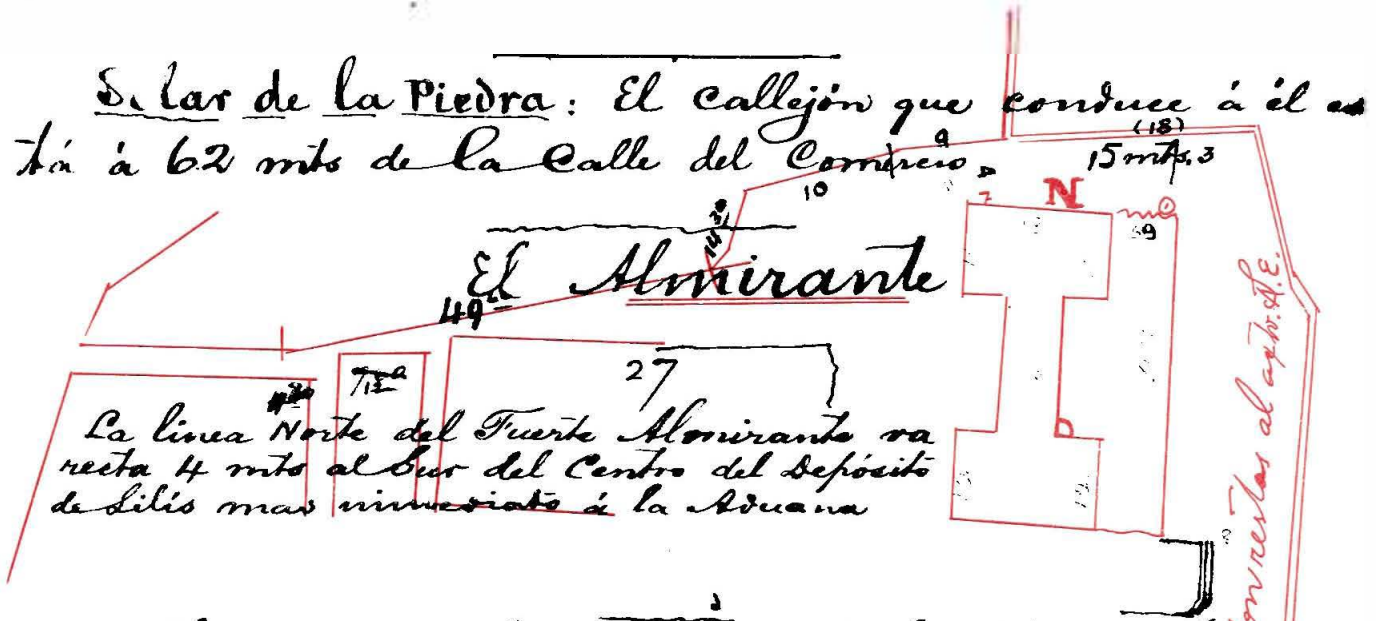 Solar de la Piedra: El callejón que conduce á él es
tá á 62 mts de la Calle del Comercio.
(18)
15 mts. 3
9
10
N
9
El Almirante
49
27
La linea Norte del Fuerte Almirante va
recta 4 mts al Sur del Centro del Depósito
de Lilís mas inmediato á la Aduana
D
al N.E.